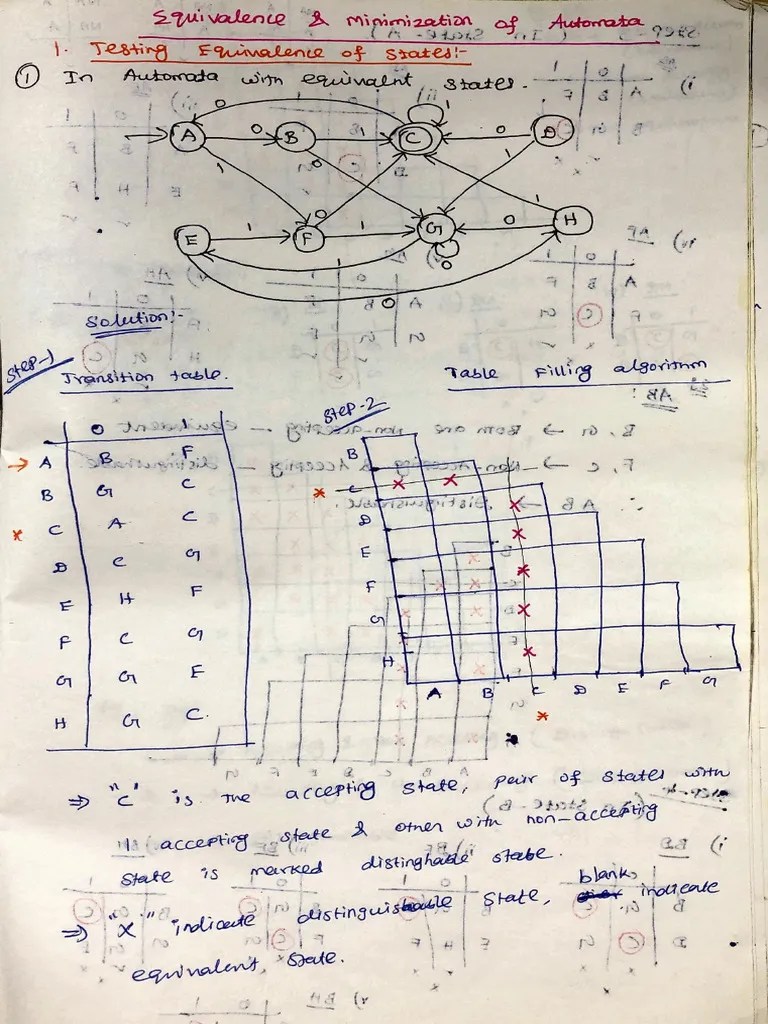 Equivalence & minimization of Automata
1. Testing Equivalence of States:-
① In Automata with equivalent states.
0 1
A 0 B 1 C 0 D
1 0 1
0 1
E 1 F 1 G 0 H
1 0
0
Solution:-
Step-1
Transition table.
Table Filling algorithm
Step-2
0 1
→ A B F
B G C
* C A C
D C G
E H F
F C G
G G E
H G C.
B
* C x x
D x
E x
F x
G x
H x
A B C D E F G
*
⇒ "C" is the accepting state, pair of states with
1 accepting state & other with non-accepting
state is marked distinghade state.
⇒ "X" indicate distinguishable state, blanks indicate
equivalent state.